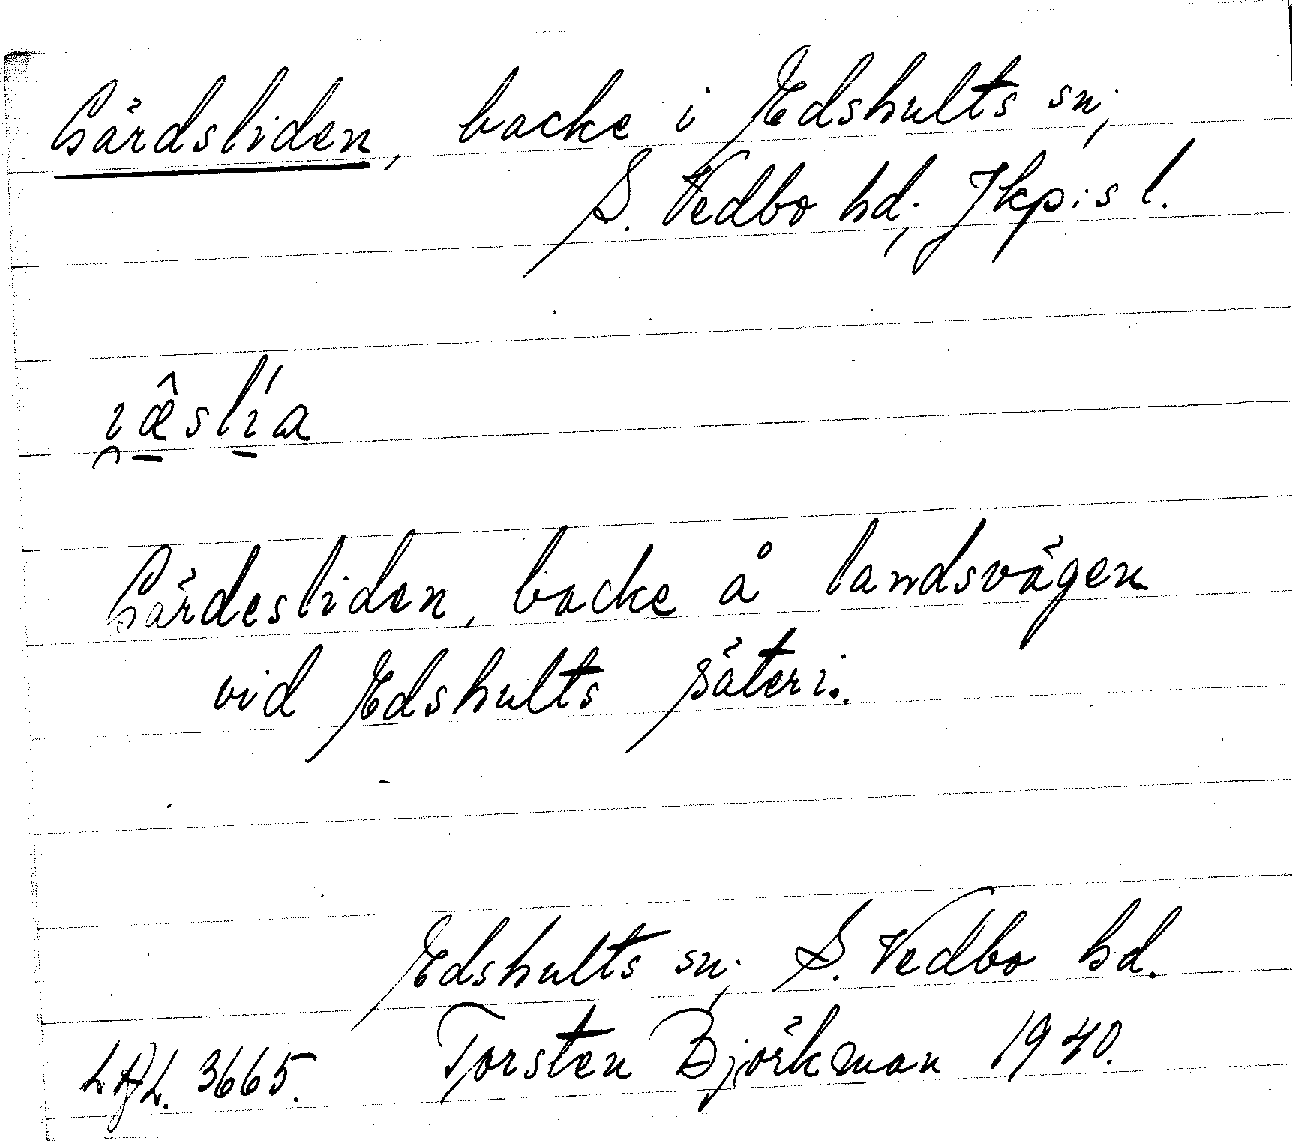 Gärdsliden, backe i Edshults sn;
S. Vedbo hd; Jkp:s l.
Gärdesliden, backe å landsvägen
vid Edshults säteri.
Edshults sn; S. Vedbo hd.
LAL. 3665. Torsten Björkman 1940.